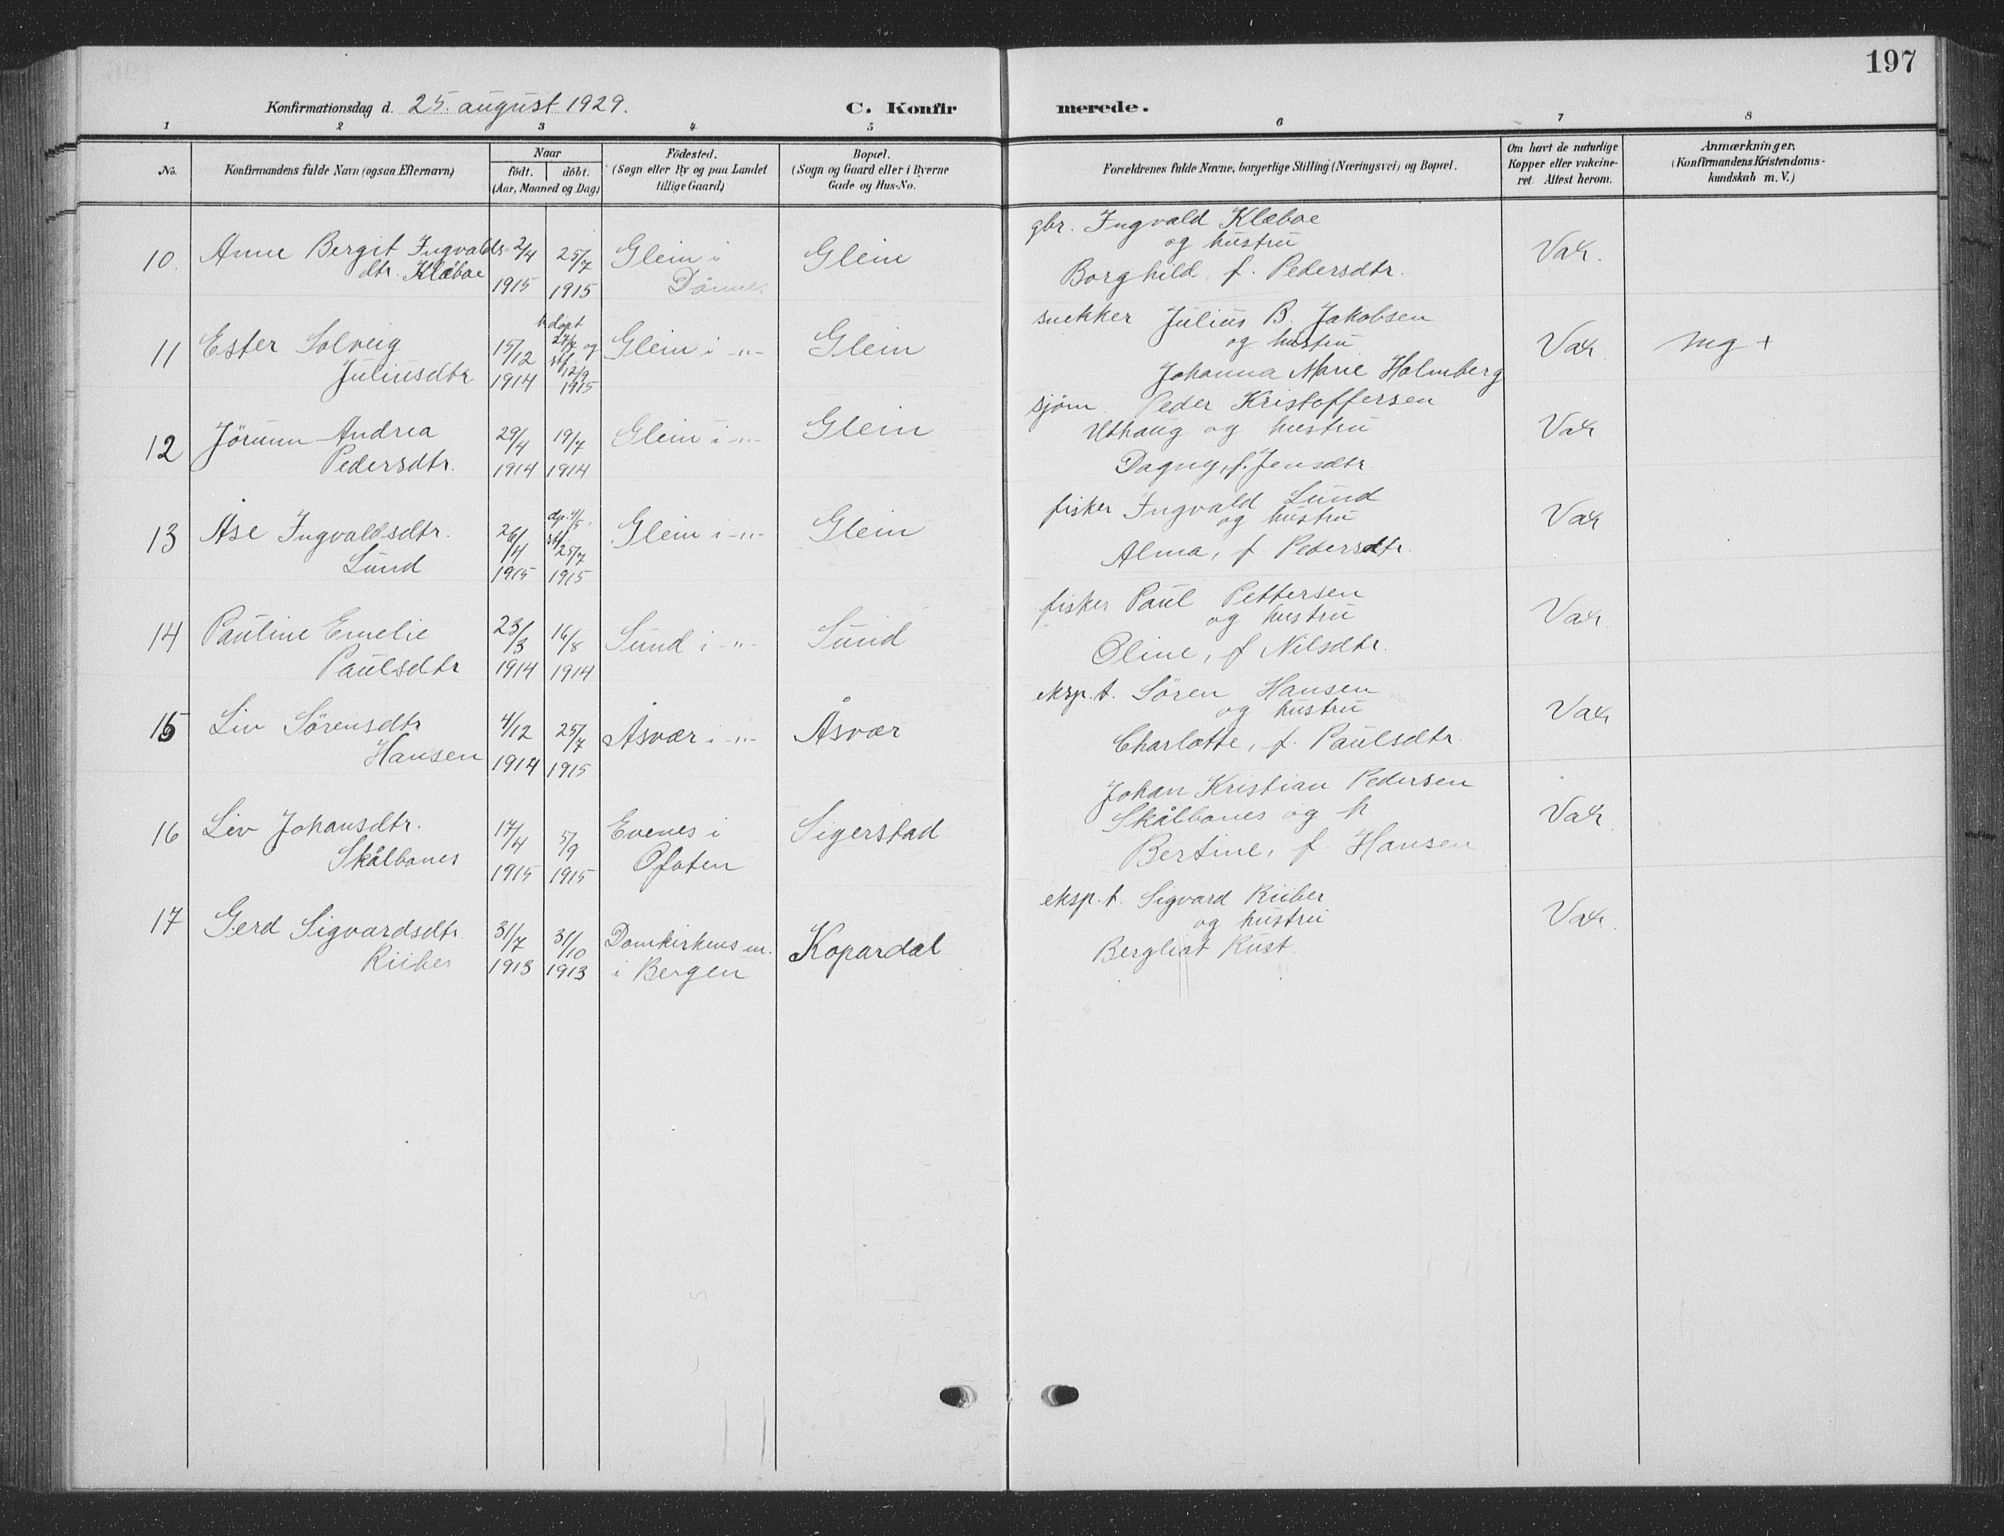 197
Konfirmationsdag d. 25. august 1929. C. Konfirmerede.
1 2 3 4 5 6 7 8
No. Konfirmandens fulde Navn (ogsaa Efternavn) Naar födt. döbt. (Aar, Maaned og Dag) Födested. (Sogn eller By og paa Landet tillige Gaard) Bopæl. (Sogn og Gaard eller i Byerne Gade og Hus-No. Forældrenes fulde Navne, borgerlige Stilling (Næringsvei) og Bopæl. Om havt de naturlige Kopper eller vakcineret. Attest herom. Anmærkninger. (Konfirmandens Kristendomskundskab m. V.)
10. Anne Bergit Ingvalds- 2/4 25/7 Glein i Glein gbr. Ingvald Klæboe Vak.
dtr. Klæboe 1915 1915 Dönnes og hustru
Borghild f. Pedersdtr.
11 Ester Solveig 15/12 hj.döpt 27/2 og Glein i -"- Glein snekker Julius B. Jakobsen Vak mg +
Juliusdtr 1914 stf. 12/9 1915 og hustru
Johanna Marie Holmberg
12 Jörunn Andrea 29/4 19/7 Glein i -"- Glein sjöm. Peder Kristoffersen Vak
Pedersdtr. 1914 1914 Uthaug og hustru
Dagny, f. Jensdtr.
13 Åse Ingvaldsdtr. 26/4 dp. 4/5. Glein i -"- Glein fisker Ingvald Lund Vak
Lund 1915 stf. 25/7 1915 og hustru
Alma, f. Pedersdtr.
14 Pauline Emelie 23/3 16/8 Sund i -"- Sund fisker Paul Pettersen Vak
Paulsdtr 1914 1914 og hustru
Oline, f. Nilsdtr.
15 Liv Sörensdtr 4/12 25/7 Åsvær i -"- Åsvær eksp. t. Sören Hansen Vak
Hansen 1914 1915 og hustru
Charlotte, f. Paulsdtr.
16 Liv Johansdtr. 17/4 5/9 Evenes i Sigerstad Johan Kristian Pedersen Vak
Skålbones 1915 1915 Ofoten Skålbones og h
Bertine, f. Hansen
17 Gerd Sigvardsdtr. 31/7 31/10 Domkirkens m. Kopardal eksp. t. Sigvard Riiber Vak.
Riiber 1913 1913 i Bergen og hustru
Bergliot Rust.